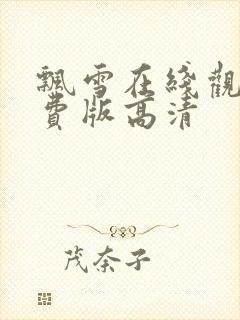 飄雪在綫觀
費版高清
茂奈子